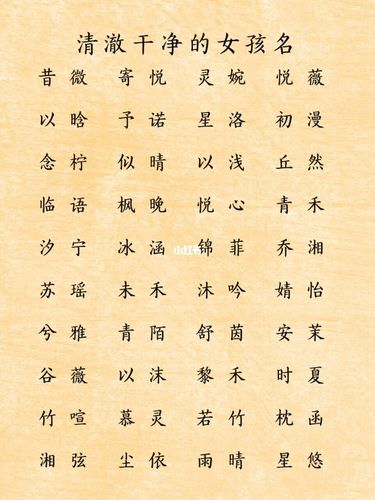 清澈干净的女孩名
昔微 寄悦 灵婉 悦薇
以晗 予诺 星洛 初漫
念柠 似晴 以浅 丘然
临语 枫晚 悦心 青禾
汐宁 冰涵 锦菲 乔湘
小红书
苏瑶 未禾 沐吟 婧怡
兮雅 青陌 舒茵 安茉
谷薇 以沫 黎禾 时夏
竹喧 慕灵 若竹 枕函
湘弦 尘依 雨晴 星悠